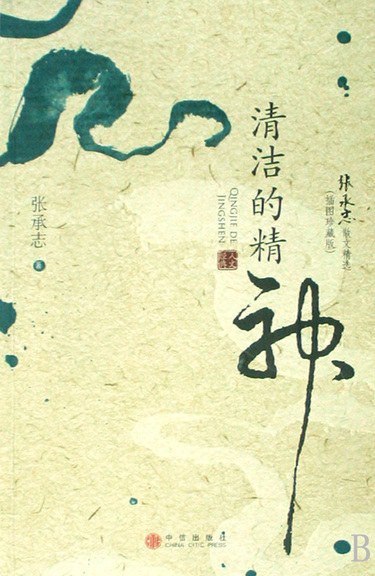 清洁的精神
QINGJIE DE
JINGSHEN
张承志散文精选
(插图珍藏版)
张承志 著
中信出版社
CHINA CITIC PRESS
B